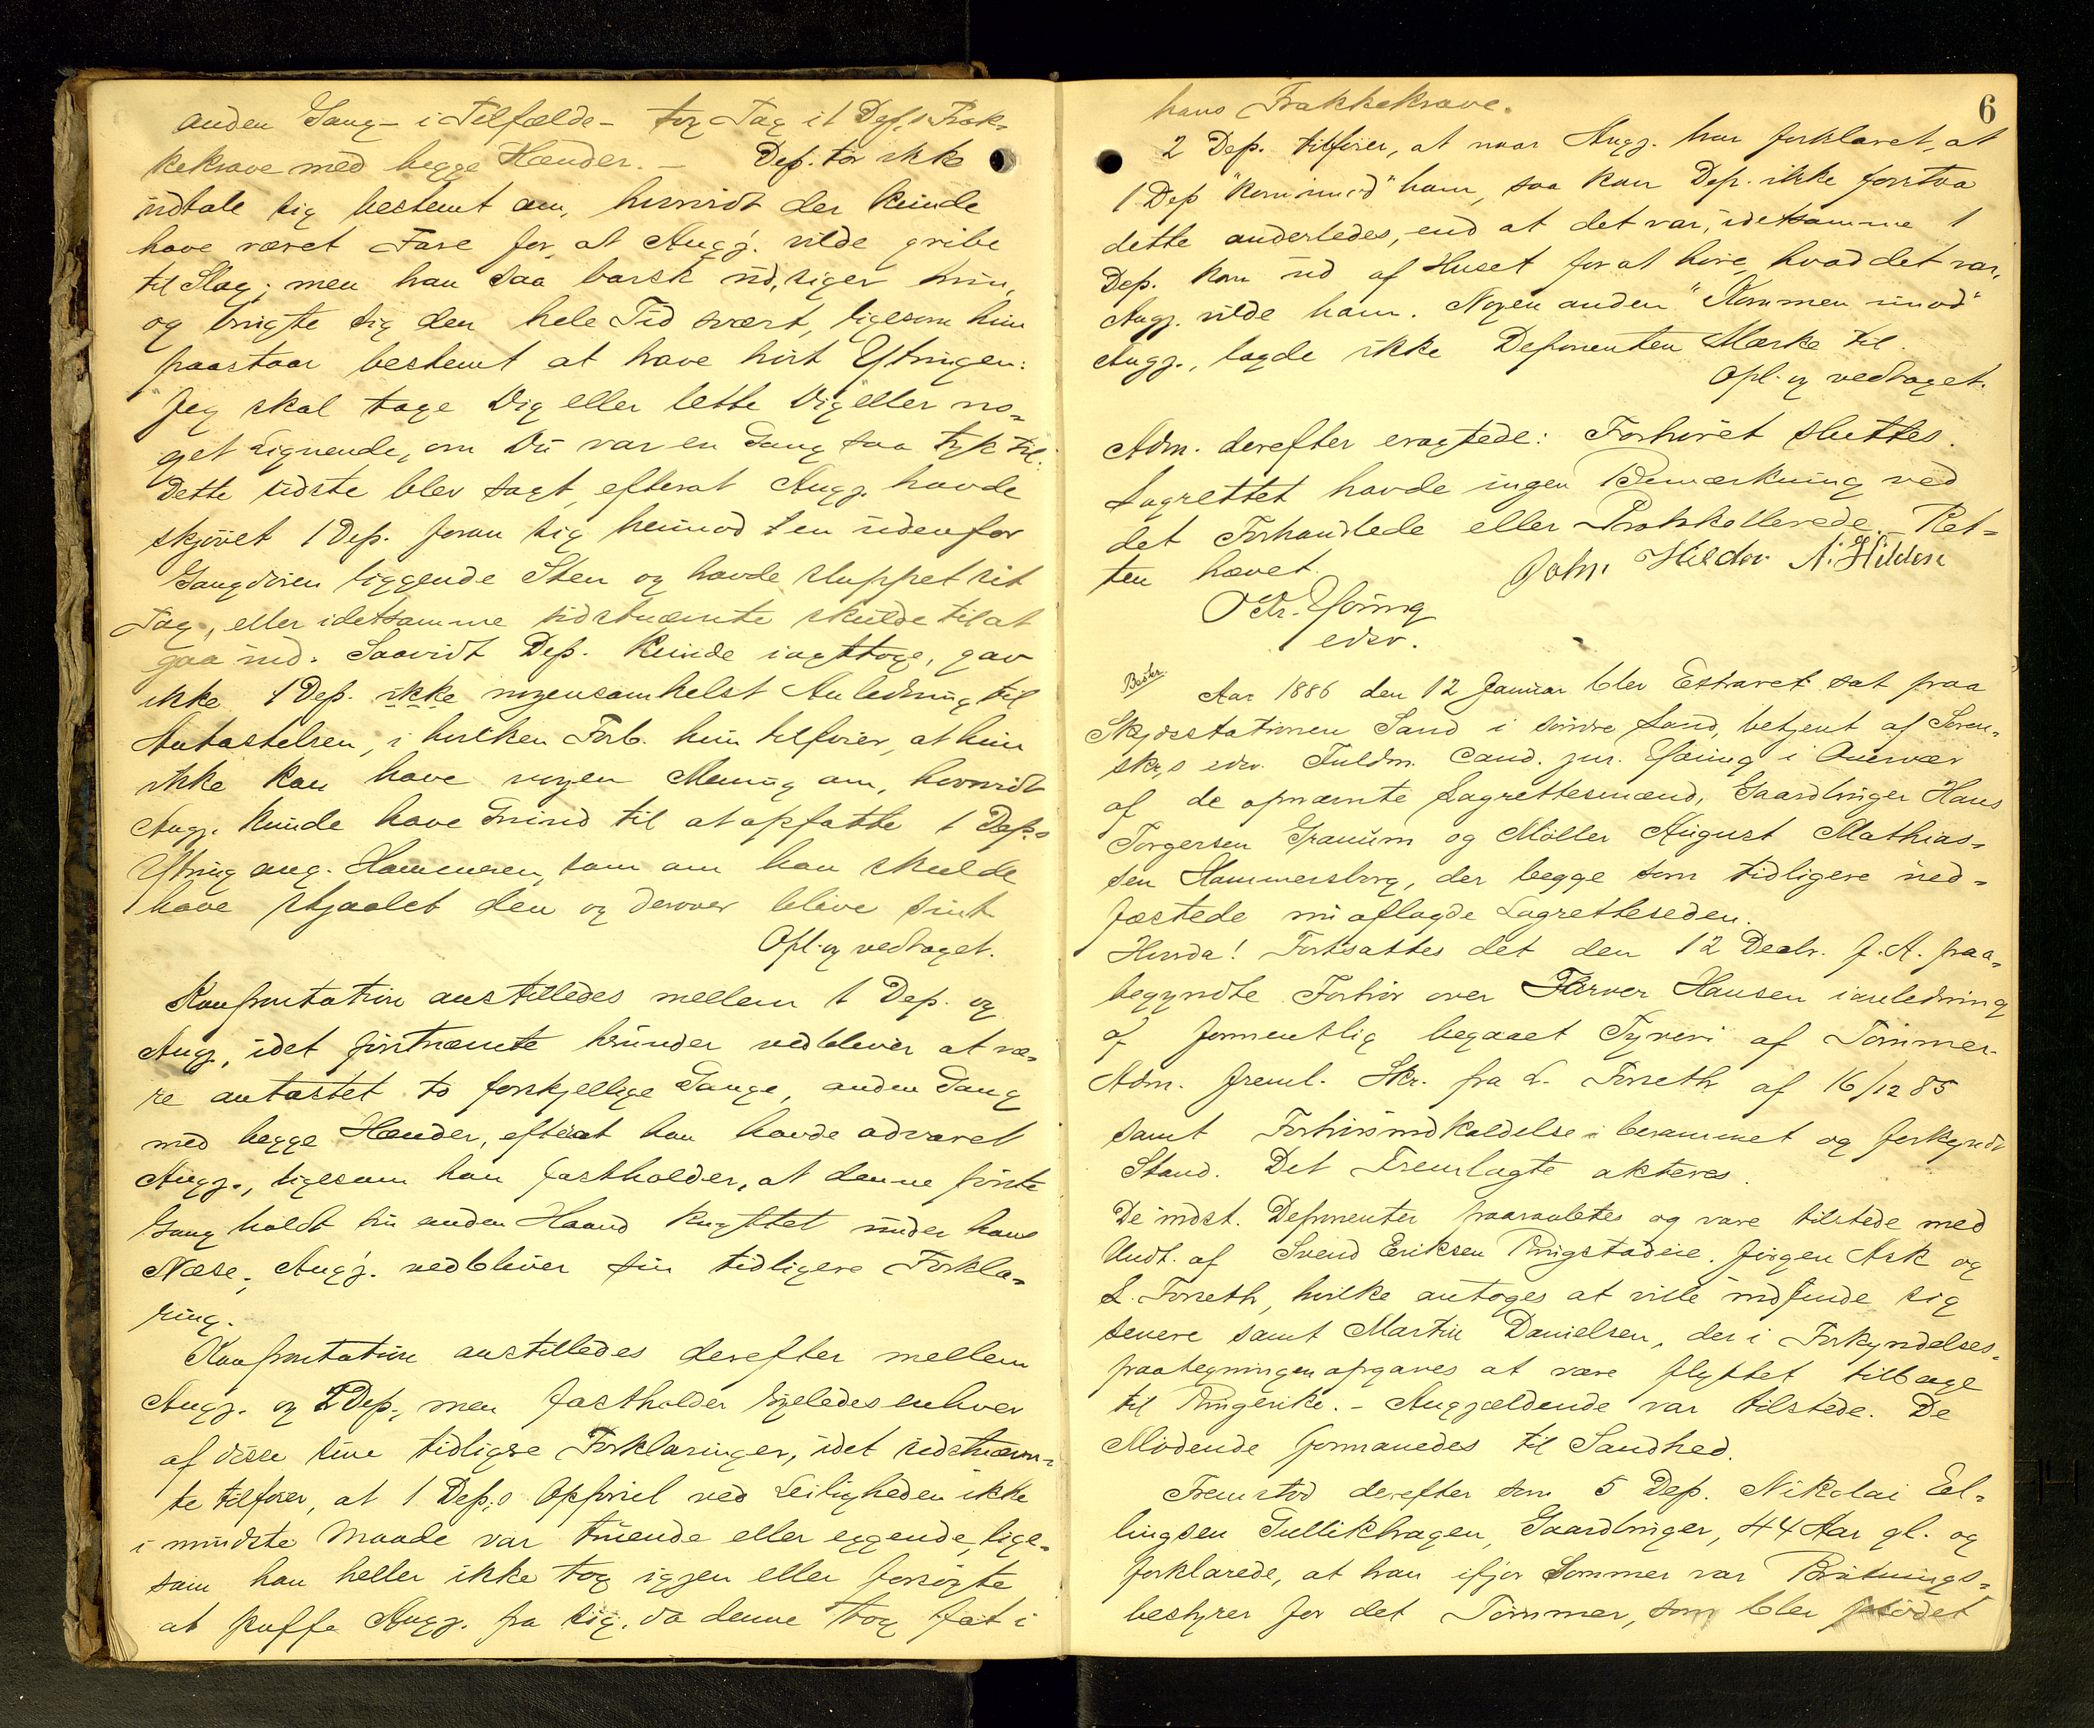 anden Gang – i Tilfælde – tog Tag i 1 Dep.s Frak-
kekrave med begge Hænder. – Dep. tør ikke
udtale sig bestemt om, hvorvidt der kunde
have været Fare for, at Angj. vilde gribe
til Slag; men han saa barsk ud, siger hun,
og brugte sig den hele Tid svært, ligesom hun
paastaar bestemt at have hørt Ytringen:
Jeg skal tage Dig eller lette Dig eller no-
get Lignende, om Du var en Gang saa tyk til.
Dette sidste blev sagt, efterat Angj. havde
skjøvet 1 Dep. foran sig henimod en udenfor
Gangdøren liggende Sten og havde sluppet sit
Tag, eller idetsamme sidstnævnte skulde til at
gaa ind. Saavidt Dep. kunde iagttage, gav
ikke 1 Dep. ikke nogensomhelst Anledning til
Antastelsen, i hvilken Forb. hun tilføier, at hun
ikke kan have nogen Mening om, hvorvidt
Angj. kunde have Grund til at opfatte 1 Dep.s
Ytring ang. Hammeren, som om han skulde
have stjaalet den og derover blive sint
Opl. og vedtaget.
Konfrontation anstilledes mellem 1 Dep. og
Angj., idet førstnævnte herunder vedbliver at væ-
re antastet to forskjellige Gange, anden Gang
med begge Hænder, efterat han havde advaret
Angj., ligesom han fastholder, at denne første
Gang holdt sin anden Haand knyttet under hans
Næse; Angj. vedbliver sin tidligere Forkla-
ring.
Konfrontation anstilledes derefter mellem
Angj. og 2 Dep., men fastholder ligeledes enhver
af disse sine tidligere Forklaringer, idet sidstnævn-
te tilføier, at 1 Dep.s Opførsel ved Leiligheden ikke
i mindste Maade var truende eller eggende, lige-
som han heller ikke tog igjen eller forsøgte
at puffe Angj. fra sig, da denne tog fat i
6
hans Frakkekrave.
2 Dep. tilføier, at naar Angj. har forklaret, at
1 Dep "kom imod" ham, saa kan Dep. ikke forstaa
dette anderledes, end at det var, idetsamme 1
Dep. kom ud af Huset for at høre, hvad det var,
Angj. vilde ham. Nogen anden "Kommen imod"
Angj., lagde ikke Deponenten Mærke til.
Opl. og vedtaget.
Adm. derefter eragtede: Forhøret sluttes.
Lagrettet havde ingen Bemærkning ved
det Forhandlede eller Protokollerede. – Ret-
ten hævet.
John Hilden N. Hilden
O Chr. Young
edsv.
Beskr.
Aar 1886 den 12 Januar blev Extraret sat paa
Skydsstationen Sand i søndre Land, betjent af Soren-
skr.s edsv. Fuldm. cand. jur. Young i Overvær
af de opnævnte Lagrettesmænd, Gaardbruger Hans
Torgersen Granum og Møller August Mathias-
sen Hammersborg, der begge som tidligere ued-
fæstede nu aflagde Lagretteseden.
Hvorda! Fortsattes det den 12 Decbr. f. A. paa-
begyndte Forhør over Hansen i anledning
af formentlig begaaet Tyveri af Tømmer.
Adm. freml. Skr. fra L. Forseth af 16/12 85
samt Forhørsindkaldelse i berammet og forkyndt
Stand. Det Fremlagte akteres.
De indst. Deponenter paaraabtes og vare tilstede med
Undt. af Svend Eriksen Ringstadeie. Jørgen Ask og
L. Forseth, hvilke antoges at ville indfinde sig
senere samt Martin Danielsen, der i Forkyndelses-
paategningen opgaves at være flyttet tilbage
til Ringerike. – Angjældende var tilstede. De
Mødende formanedes til Sandhed.
Fremstod derefter som 5 Dep. Nikolai El-
lingsen Gullikhagen, Gaardbruger, 44 Aar gl. og
forklarede, at han ifjor Sommer var Brøtnings-
bestyrer for det Tømmer, som blev flødet